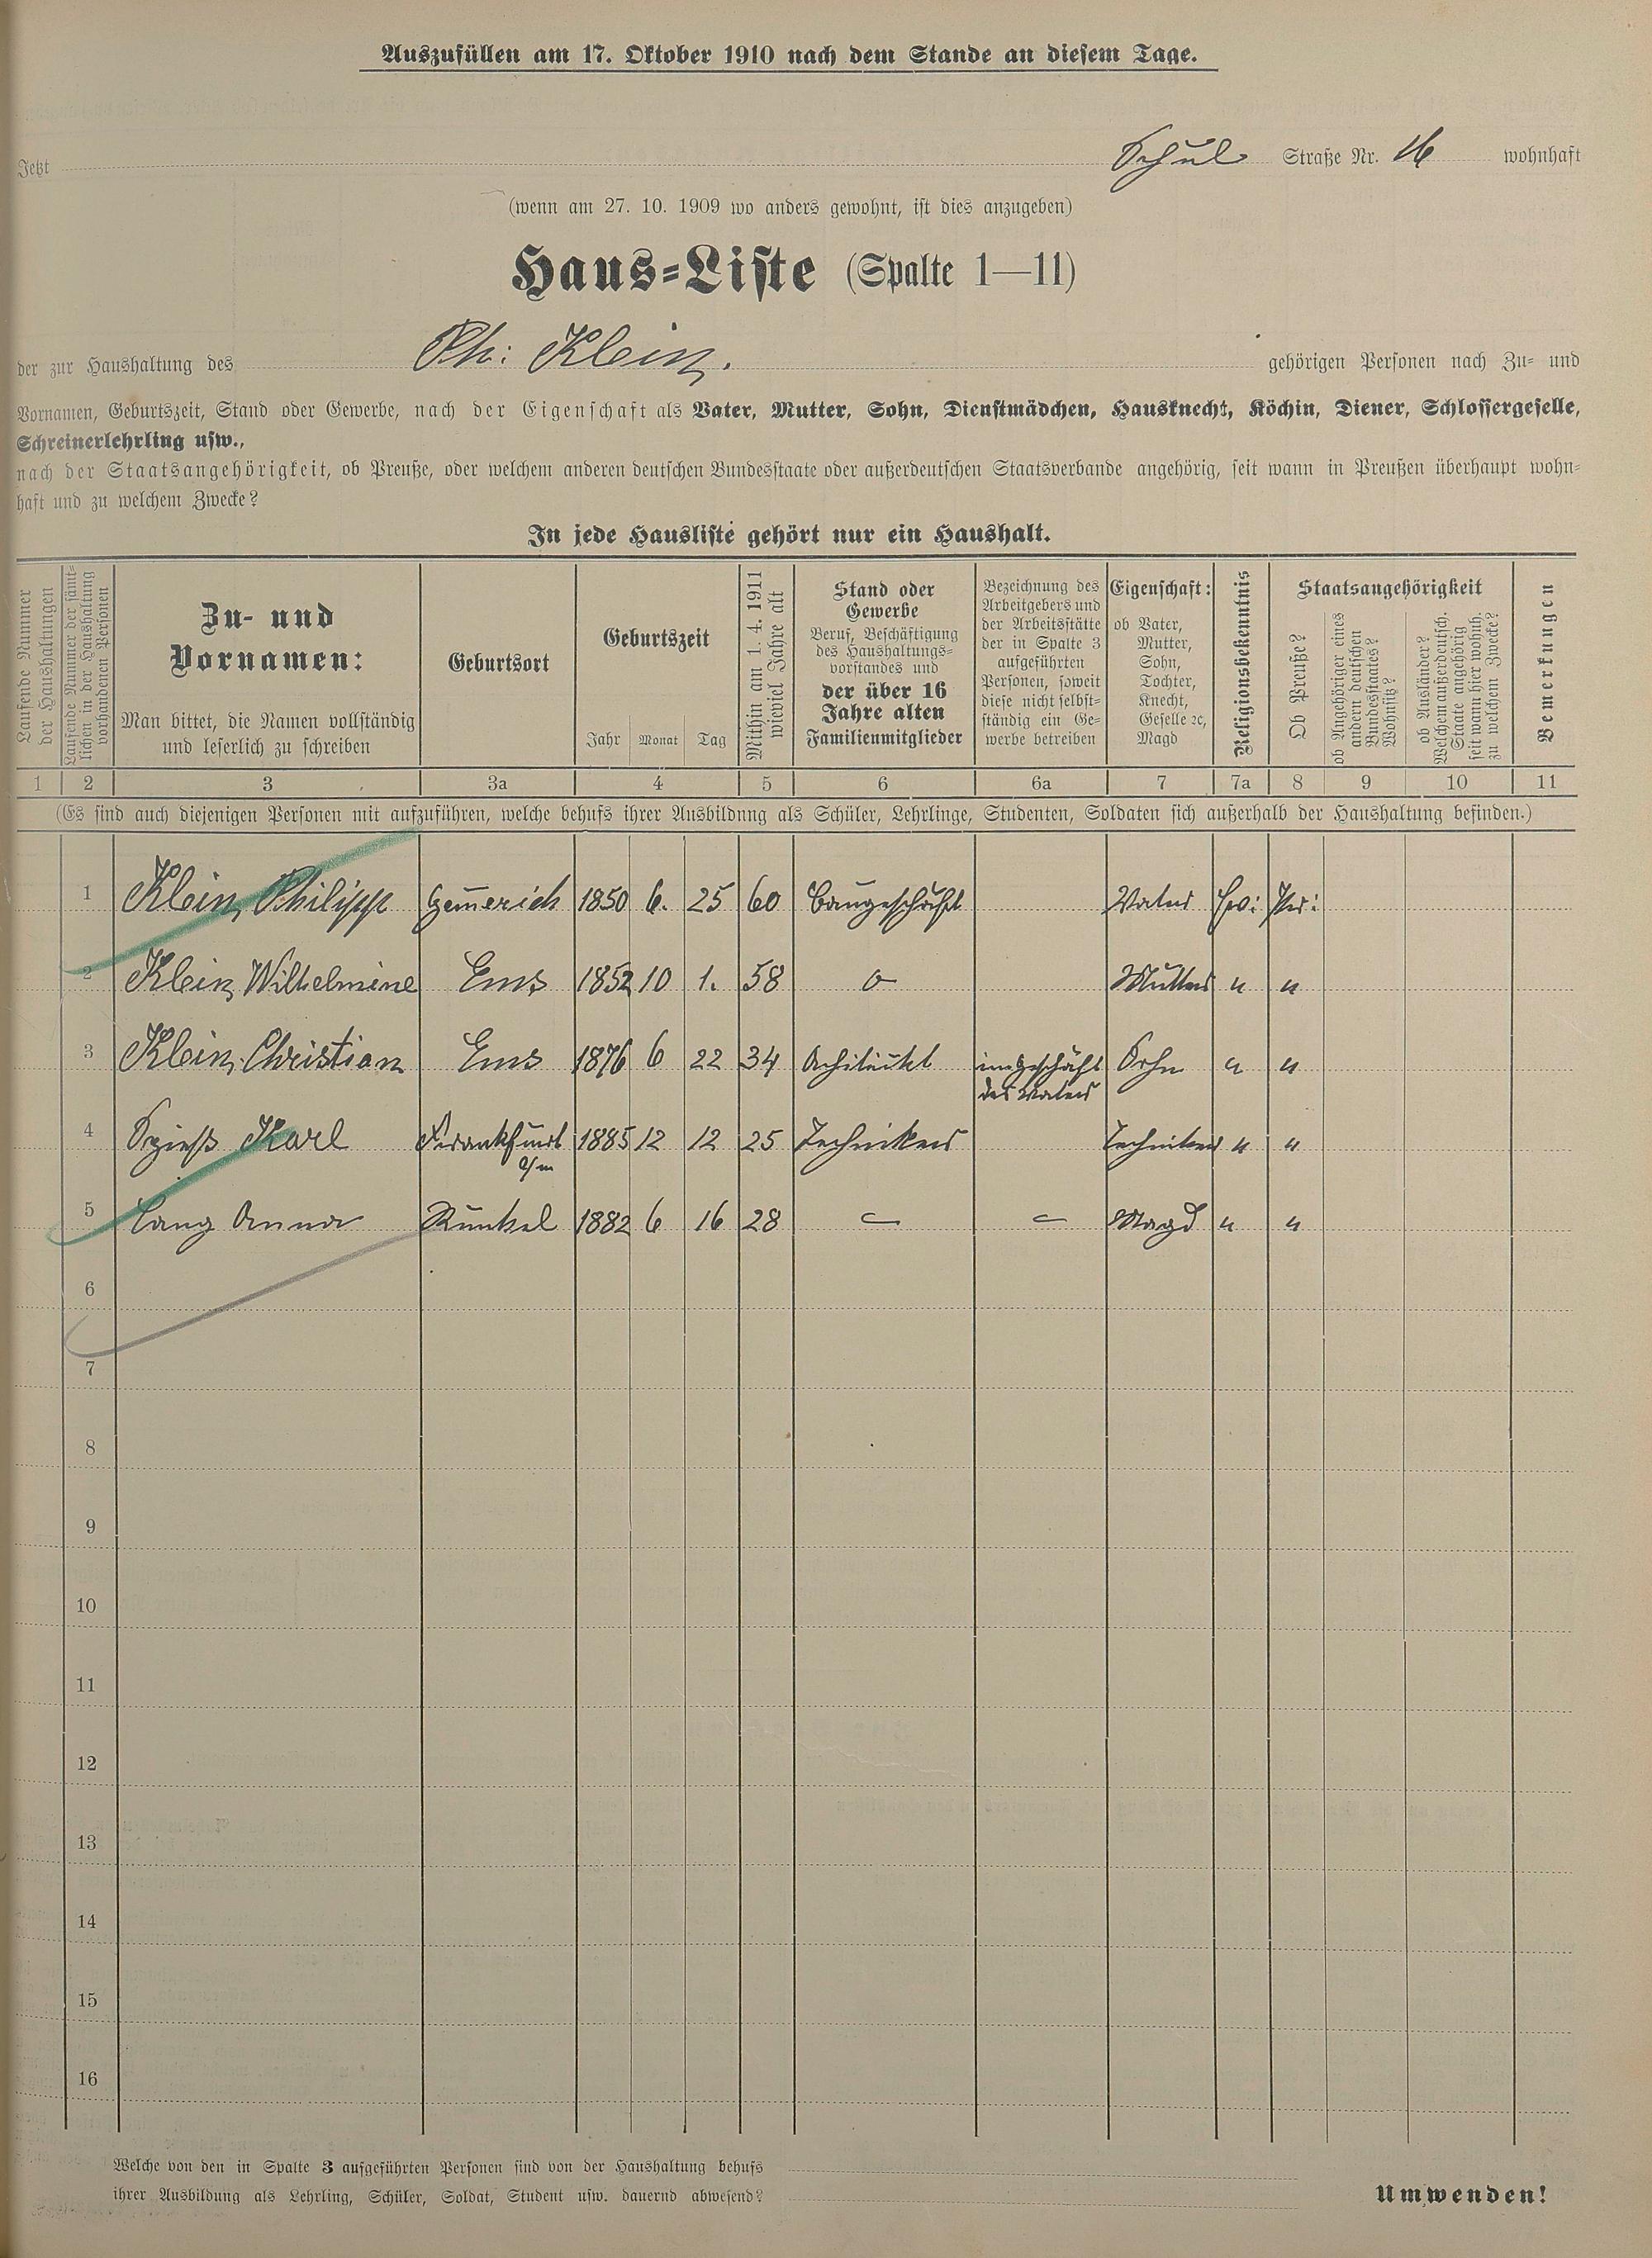 Auszufüllen am 17. Oktober 1910 nach dem Stande an diesem Tage.
Jetzt Schul Straße Nr. 16 wohnhaft
(wenn am 27. 10. 1909 wo anders gewohnt, ist dies anzugeben)
Haus=Liste (Spalte 1—11)
der zur Haushaltung des Ph: Klein. gehörigen Personen nach Zu= und
Vornamen, Geburtszeit, Stand oder Gewerbe, nach der Eigenschaft als Vater, Mutter, Sohn, Dienstmädchen, Hausknecht, Köchin, Diener, Schlossergeselle,
Schreinerlehrling usw.,
nach der Staatsangehörigkeit, ob Preuße, oder welchem anderen deutschen Bundesstaate oder außerdeutschen Staatsverbande angehörig, seit wann in Preußen überhaupt wohn=
haft und zu welchem Zwecke?
In jede Hausliste gehört nur ein Haushalt.
Laufende Nummer
der Haushaltungen
Laufende Nummer der sämt=
lichen in der Haushaltung
vorhandenen Personen
Zu- und
Vornamen:
Man bittet, die Namen vollständig
und leserlich zu schreiben
Geburtsort
Geburtszeit
Jahr Monat Tag
Mithin am 1. 4. 1911
wieviel Jahre alt
Stand oder
Gewerbe
Beruf, Beschäftigung
des Haushaltungs=
vorstandes und
der über 16
Jahre alten
Familienmitglieder
Bezeichnung des
Arbeitgebers und
der Arbeitsstätte
der in Spalte 3
aufgeführten
Personen, soweit
diese nicht selbst=
ständig ein Ge=
werbe betreiben
Eigenschaft:
ob Vater,
Mutter,
Sohn,
Tochter,
Knecht,
Geselle 2c,
Magd
Religionsbekenntnis
Staatsangehörigkeit
Ob Preuße?
ob Angehöriger eines
andern deutschen
Bundesstaates?
Wohnsitz?
ob Ausländer?
Welchem außerdeutsch.
Staate angehörig
seit wann hier wohnh.
zu welchem Zwecke?
Bemerkungen
1 2 3 3a 4 5 6 6a 7 7a 8 9 10 11
(Es sind auch diejenigen Personen mit aufzuführen, welche behufs ihrer Ausbildung als Schüler, Lehrlinge, Studenten, Soldaten sich außerhalb der Haushaltung befinden.)
1 Klein, Philipp Gem̄erich 1850 6. 25 60 Baugeschäft Vater Ev: Pr:
2 Klein Wilhelmine Ems 1852 10 1. 58 o Mutter " "
3 Klein Christian Ems 1876 6 22 34 Achiteckt im Geschäft Sohn " "
des Vaters
4 Spieß Karl Frankfurt 1885 12 12 25 Techniker Techniker " "
a/m
5 Lang Anna Runkel 1882 6 16 28 — — Magd " "
6
7
8
9
10
11
12
13
14
15
16
Welche von den in Spalte 3 aufgeführten Personen sind von der Haushaltung behufs
ihrer Ausbildung als Lehrling, Schüler, Soldat, Student usw. dauernd abwesend?
Umwenden!